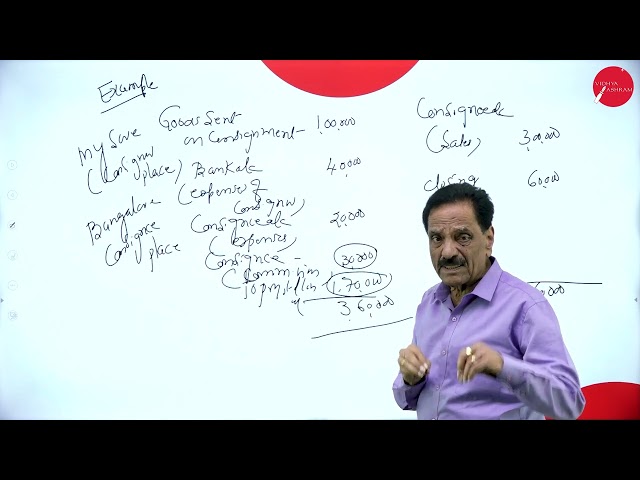 Example
Mysore Goods Sent
on Consignment - 1,00,000
(Consignor place) Bank a/c 40,000
(expenses of
Consignor)
Bangalore Consignee a/c 20,000
Consignee place (expenses)
Consignee - 30,000
(Commission
To profit 1,70,000
3,60,000
Consignee a/c
(Sales) 3,00,000
closing 60,000
VIDHYA
ASHRAM